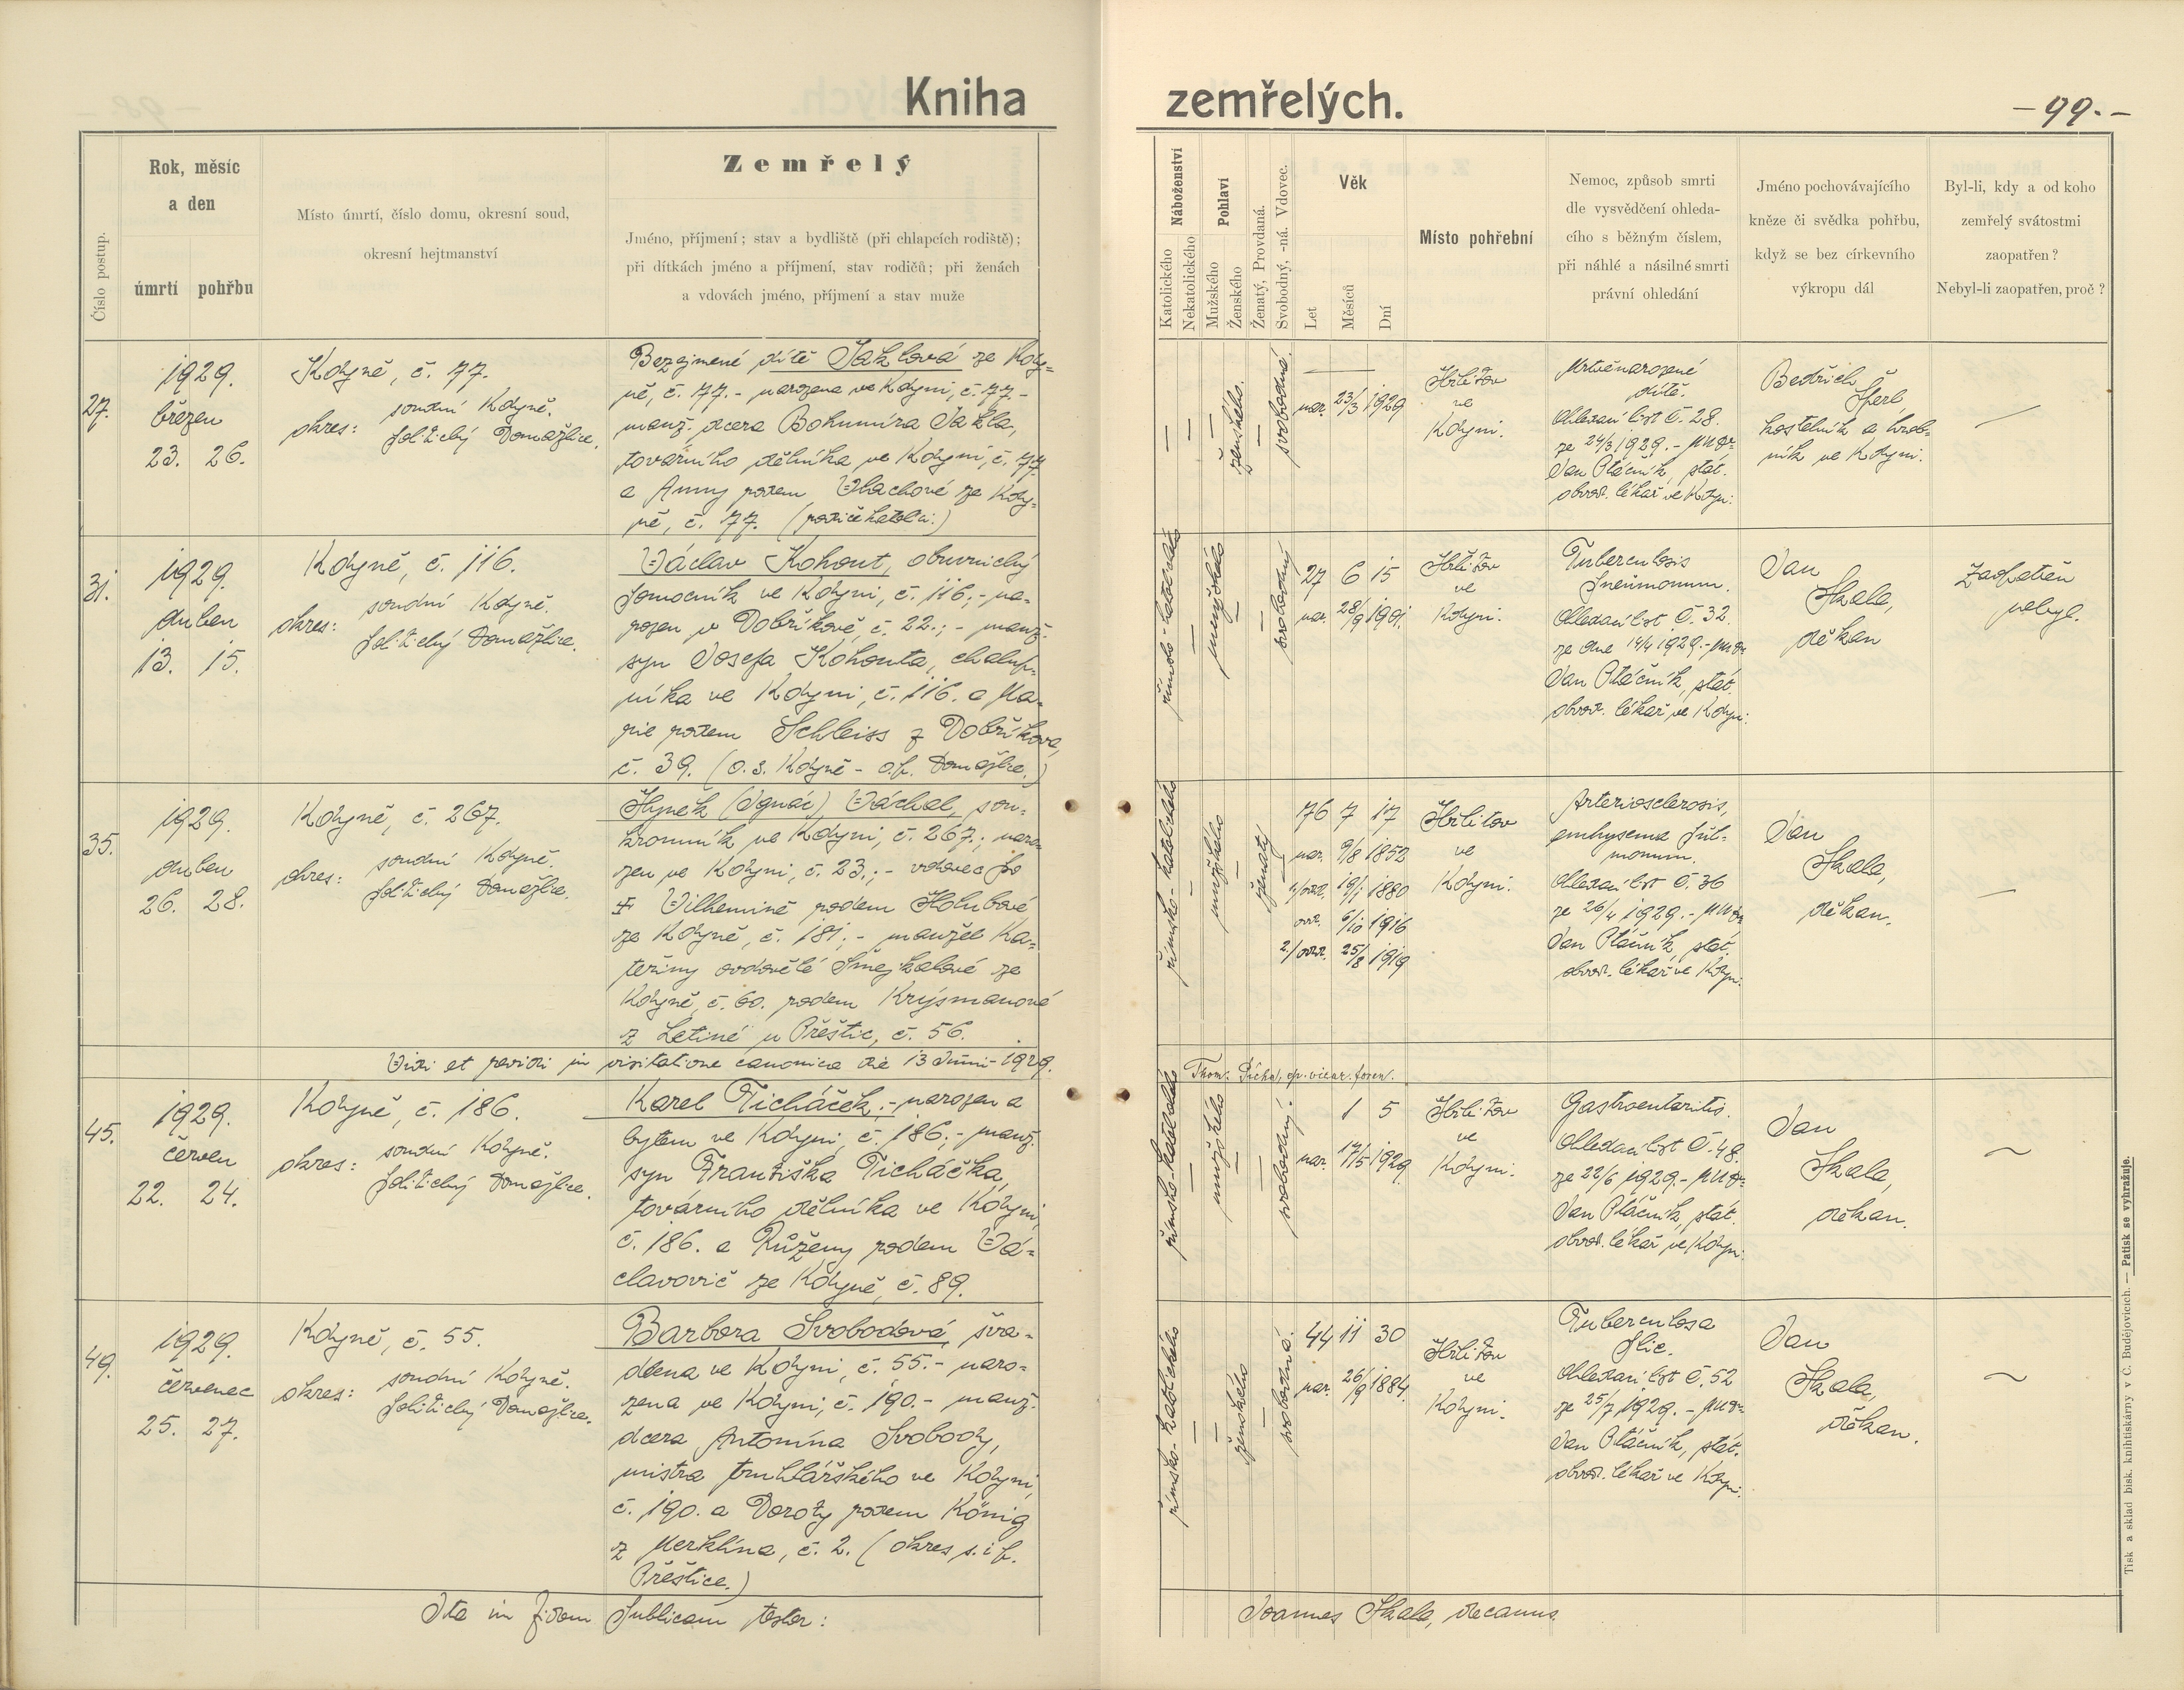 Kniha zemřelých.
- 99. -
Číslo postup.
Rok, měsíc
a den
úmrtí pohřbu
Místo úmrtí, číslo domu, okresní soud,
okresní hejtmanství
Zemřelý
Jméno, příjmení; stav a bydliště (při chlapcích rodiště);
při dítkách jméno a příjmení, stav rodičů; při ženách
a vdovách jméno, příjmení a stav muže
Náboženství
Katolického
Nekatolického
Pohlaví
Mužského
Ženského
Ženatý, Provdaná.
Svobodný, -ná. Vdovec.
Věk
Let
Měsíců
Dní
Místo pohřební
Nemoc, způsob smrti
dle vysvědčení ohleda-
cího s běžným číslem,
při náhlé a násilné smrti
právní ohledání
Jméno pochovávajícího
kněze či svědka pohřbu,
když se bez církevního
výkropu dál
Byl-li, kdy a od koho
zemřelý svátostmi
zaopatřen?
Nebyl-li zaopatřen, proč?
27.
1929.
březen
23. 26.
Kdyně, č. 77.
okres: soudní Kdyně.
politický Domažlice.
Bezejmené dítě Jaklová ze Kdy-
ně, č. 77. - narozena ve Kdyni, č. 77. -
manž. dcera Bohumíra Jakla,
továrního dělníka ve Kdyni, č. 77
a Anny rodem Vlachové ze Kdy-
ně, č. 77. (rodiče katol.)
ženského.
svobodná.
nar. 23/3 1929
Hřbitov
ve
Kdyni.
Mrtvěnarozené
dítě.
Ohledací list č. 28.
ze 24/3 1929. - MUDr
Jan Ptáčník, stát.
obvod. lékař ve Kdyni.
Bedřich
Šperl,
kostelník a hrob-
ník ve Kdyni.
31.
1929.
duben
13. 15.
Kdyně, č. 116.
okres: soudní Kdyně.
politický Domažlice.
Václav Kohout, obuvnický
pomocník ve Kdyni, č. 116; - na-
rozen v Dobříkově, č. 22.; - manž.
syn Josefa Kohouta, chalup-
níka ve Kdyni, č. 116. a Ma-
rie rodem Schleiss z Dobříkova,
č. 39. (o.s. Kdyně - o.p. Domažlice.)
římsko-katolického
mužského
svobodný
27 6 15
nar. 28/9 1901.
Hřbitov
ve
Kdyni.
Tuberculosis
pneumonum.
Ohledací list č. 32.
ze dne 14/4 1929. - MUDr
Jan Ptáčník, stát.
obvod. lékař ve Kdyni.
Jan
Skala,
děkan
Zaopatřen
nebyl.
35.
1929.
duben
26. 28.
Kdyně, č. 267.
okres: soudní Kdyně.
politický Domažlice.
Hynek (Ignác) Váchal, sou-
kromník ve Kdyni, č. 267.; naro-
zen ve Kdyni, č. 23.; - vdovec po
✝ Vilhemině rodem Holubové
ze Kdyně, č. 181; - manžel Ka-
teřiny ovdovělé Smejkalové ze
Kdyně, č. 60. rodem Krýsmanové
z Letiné u Přeštic, č. 56.
římsko-katolického
mužského
ženatý
76 7 17
nar. 9/8 1852
1/odd. 19/1 1880
ovd. 6/10 1916
2/odd. 25/8 1919
Hřbitov
ve
Kdyni.
Arteriosclerosis,
emhysema pul-
monum.
Ohledací list č. 36
ze 26/4 1929. - MUDr
Jan Ptáčník, stát.
obvod. lékař ve Kdyni.
Jan
Skala,
děkan.
Vidi et revidi in visitatione canonica die 13 Junii 1929.
Thom. Pícha, ep. vicar. foren.
45.
1929.
červen
22. 24.
Kdyně, č. 186.
okres: soudní Kdyně.
politický Domažlice.
Karel Ticháček; - narozen a
bytem ve Kdyni, č. 186; - manž.
syn Františka Ticháčka,
továrního dělníka ve Kdyni,
č. 186. a Růženy rodem Vá-
clavovič ze Kdyně, č. 89.
římsko-katolického
mužského
svobodný.
1 5
nar. 17/5 1929
Hřbitov
ve
Kdyni.
Gastroenteritis.
Ohledací list č. 48.
ze 22/6 1929. - MUDr
Jan Ptáčník, stát.
obvod. lékař ve Kdyni.
Jan
Skala,
děkan.
49.
1929.
červenec
25. 27.
Kdyně, č. 55.
okres: soudní Kdyně.
politický Domažlice.
Barbora Svobodová, šva-
dlena ve Kdyni, č. 55. - naro-
zena ve Kdyni, č. 190. - manž.
dcera Antonína Svobody,
mistra truhlářského ve Kdyni,
č. 190. a Doroty rodem König
z Merklína, č. 2. (okres s. i p.
Přeštice.)
římsko-katolického
ženského
svobodná.
44 11 30
nar. 26/9 1884.
Hřbitov
ve
Kdyni.
Tuberculosa
plic.
Ohledací list č. 52
ze 25/7 1929. - MUDr
Jan Ptáčník, stát.
obvod. lékař ve Kdyni.
Jan
Skala,
děkan.
Ita in fidem publicam testor:
Joannes Skala, decanus
Tisk a sklad bisk. knihtiskárny v Č. Budějovicích. — Patisk se vyhražuje.